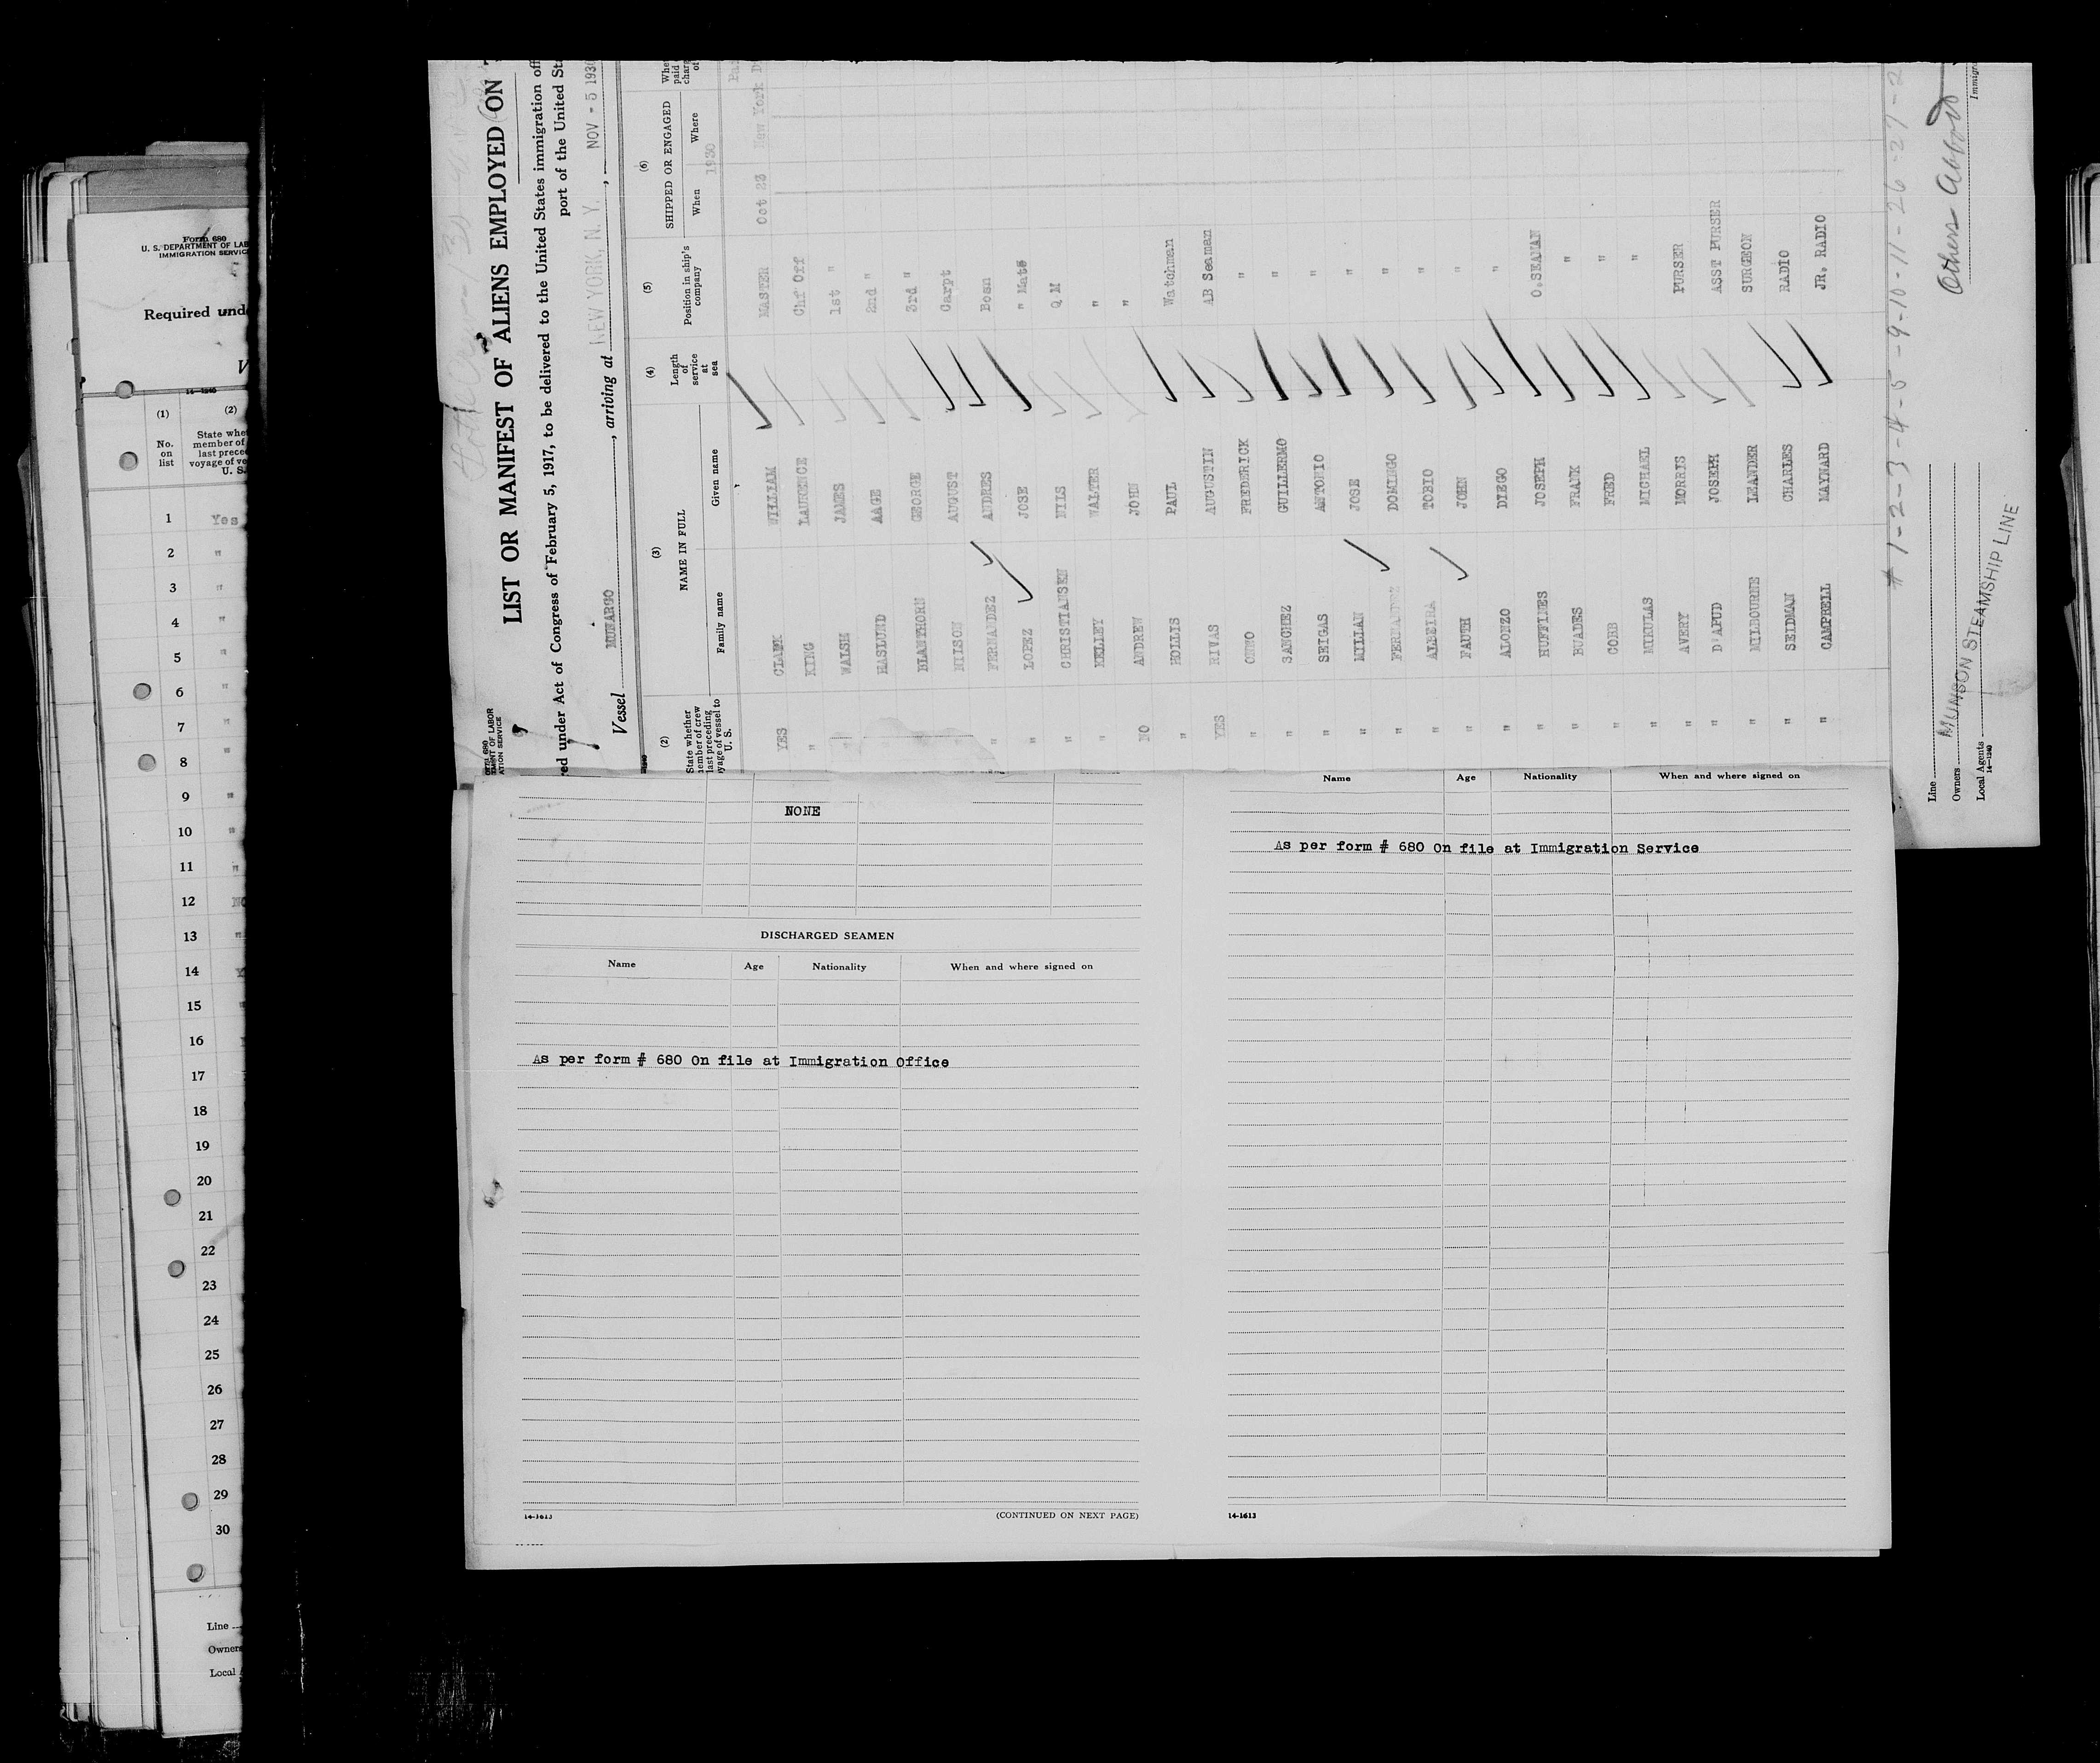 Form 680
U. S. DEPARTMENT OF LAB
IMMIGRATION SERVIC
Required und
V
14-1240
(1) (2)
No. on list
State whe
member of
last prece
voyage of ve
U. S.
1 Yes
2 "
3 "
4 "
5 "
6 "
7 "
8 "
9 "
10 "
11 "
12 NO
13 "
14 Y
15 "
16
17
18
19
20
21
22
23
24
25
26
27
28
29
30
Line
Owners
Local
LIST OR MANIFEST OF ALIENS EMPLOYED ON
ed under Act of Congress of February 5, 1917, to be delivered to the United States immigration off
port of the United Sta
MENT OF LABOR
ATION SERVICE
Vessel MUNARGO, arriving at NEW YORK, N. Y., NOV - 5 1930
(2) (3) (4) (5) (6)
State whether
member of crew
last preceding
voyage of vessel to
U. S.
NAME IN FULL
Family name Given name
Length of service at sea
Position in ship's company
SHIPPED OR ENGAGED
When Where
1930
YES CLARK WILLIAM MASTER Oct 23 New York
" KING LAURENCE Chf Off
WALSH JAMES 1st "
HASLUND AAGE 2nd "
BLANTHORN GEORGE 3rd "
NILSON AUGUST Carpt
" FERNANDEZ ANDRES Bosn
" LOPEZ JOSE " Mate
" CHRISTIANSEN NILS Q M
" KELLEY WALTER "
NO ANDREW JOHN "
" HOLLIS PAUL Watchman
YES RIVAS AUGUSTIN AB Seaman
" FREDERICK "
" SANCHEZ GUILLERMO "
" SEIGAS ANTONIO "
" MILIAN JOSE "
" FERNANDEZ DOMINGO "
" ALBEIRA TOBIO "
" FAUTH JOHN "
" ALONZO DIEGO "
" HUFFINES JOSEPH O.SEAMAN
" BUADES FRANK "
" COBB FRED "
" MIKULAS MICHAEL "
" AVERY MORRIS PURSER
" D'APUD JOSEPH ASST PURSER
" MILBOURNE LEANDER SURGEON
" SEIDMAN CHARLES RADIO
" CAMPBELL MAYNARD JR. RADIO
# 1-2-3-4-5-9-10-11-26-27-2
Others Abbott
Immigra
Line
Owners MUNSON STEAMSHIP LINE
Local Agents
14-1240
NONE
DISCHARGED SEAMEN
Name Age Nationality When and where signed on
As per form # 680 On file at Immigration Office
14-1613
(CONTINUED ON NEXT PAGE)
Name Age Nationality When and where signed on
As per form # 680 On file at Immigration Service
14-1613